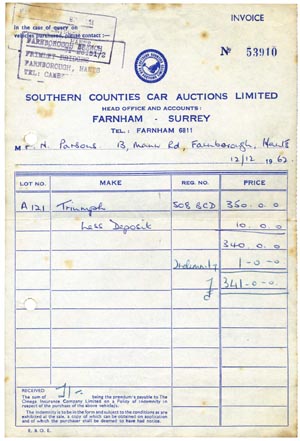 INVOICE
In the case of query on
vehicles purchased, please contact :—
FARNBOROUGH
FRIMLEY BRIDGES
FARNBOROUGH, HANTS
Nº 53910
SOUTHERN COUNTIES CAR AUCTIONS LIMITED
HEAD OFFICE AND ACCOUNTS:
FARNHAM - SURREY
TEL.: FARNHAM 6811
Mr. N. Parsons 13, Rd, Farnborough, Hants
12/12 1962
LOT NO. MAKE REG. NO. PRICE
A121 Triumph 508 BCD 350. 0. 0
Less Deposit 10. 0. 0
340. 0. 0
Indemnity 1-0-0
£ 341-0-0
RECEIVED
The sum of £1/- being the premium's payable to The
Omega Insurance Company Limited on a Policy of Indemnity in
respect of the purchase of the above vehicle/s.
The Indemnity is to be in the form and subject to the conditions as
exhibited at the sale, a copy of which can be obtained on application
and of which the purchaser shall be deemed to have had notice.
E. & O. E.